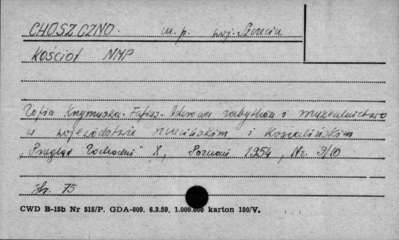 CHOSZCZNO. m.p. woj. Szczecin
KOŚCIÓŁ NMP
Zofia Krzymuska-Fafius. Odnowa zabytków i muzealnictwo
w województwie szczecińskim i koszalińskim
„Przegląd Zachodni" X, Poznań 1954, Nr 9/10
Str. 75
CWD B-15b Nr 515/P. GDA-809. 6.3.59. 1.000.000 karton 180/V.